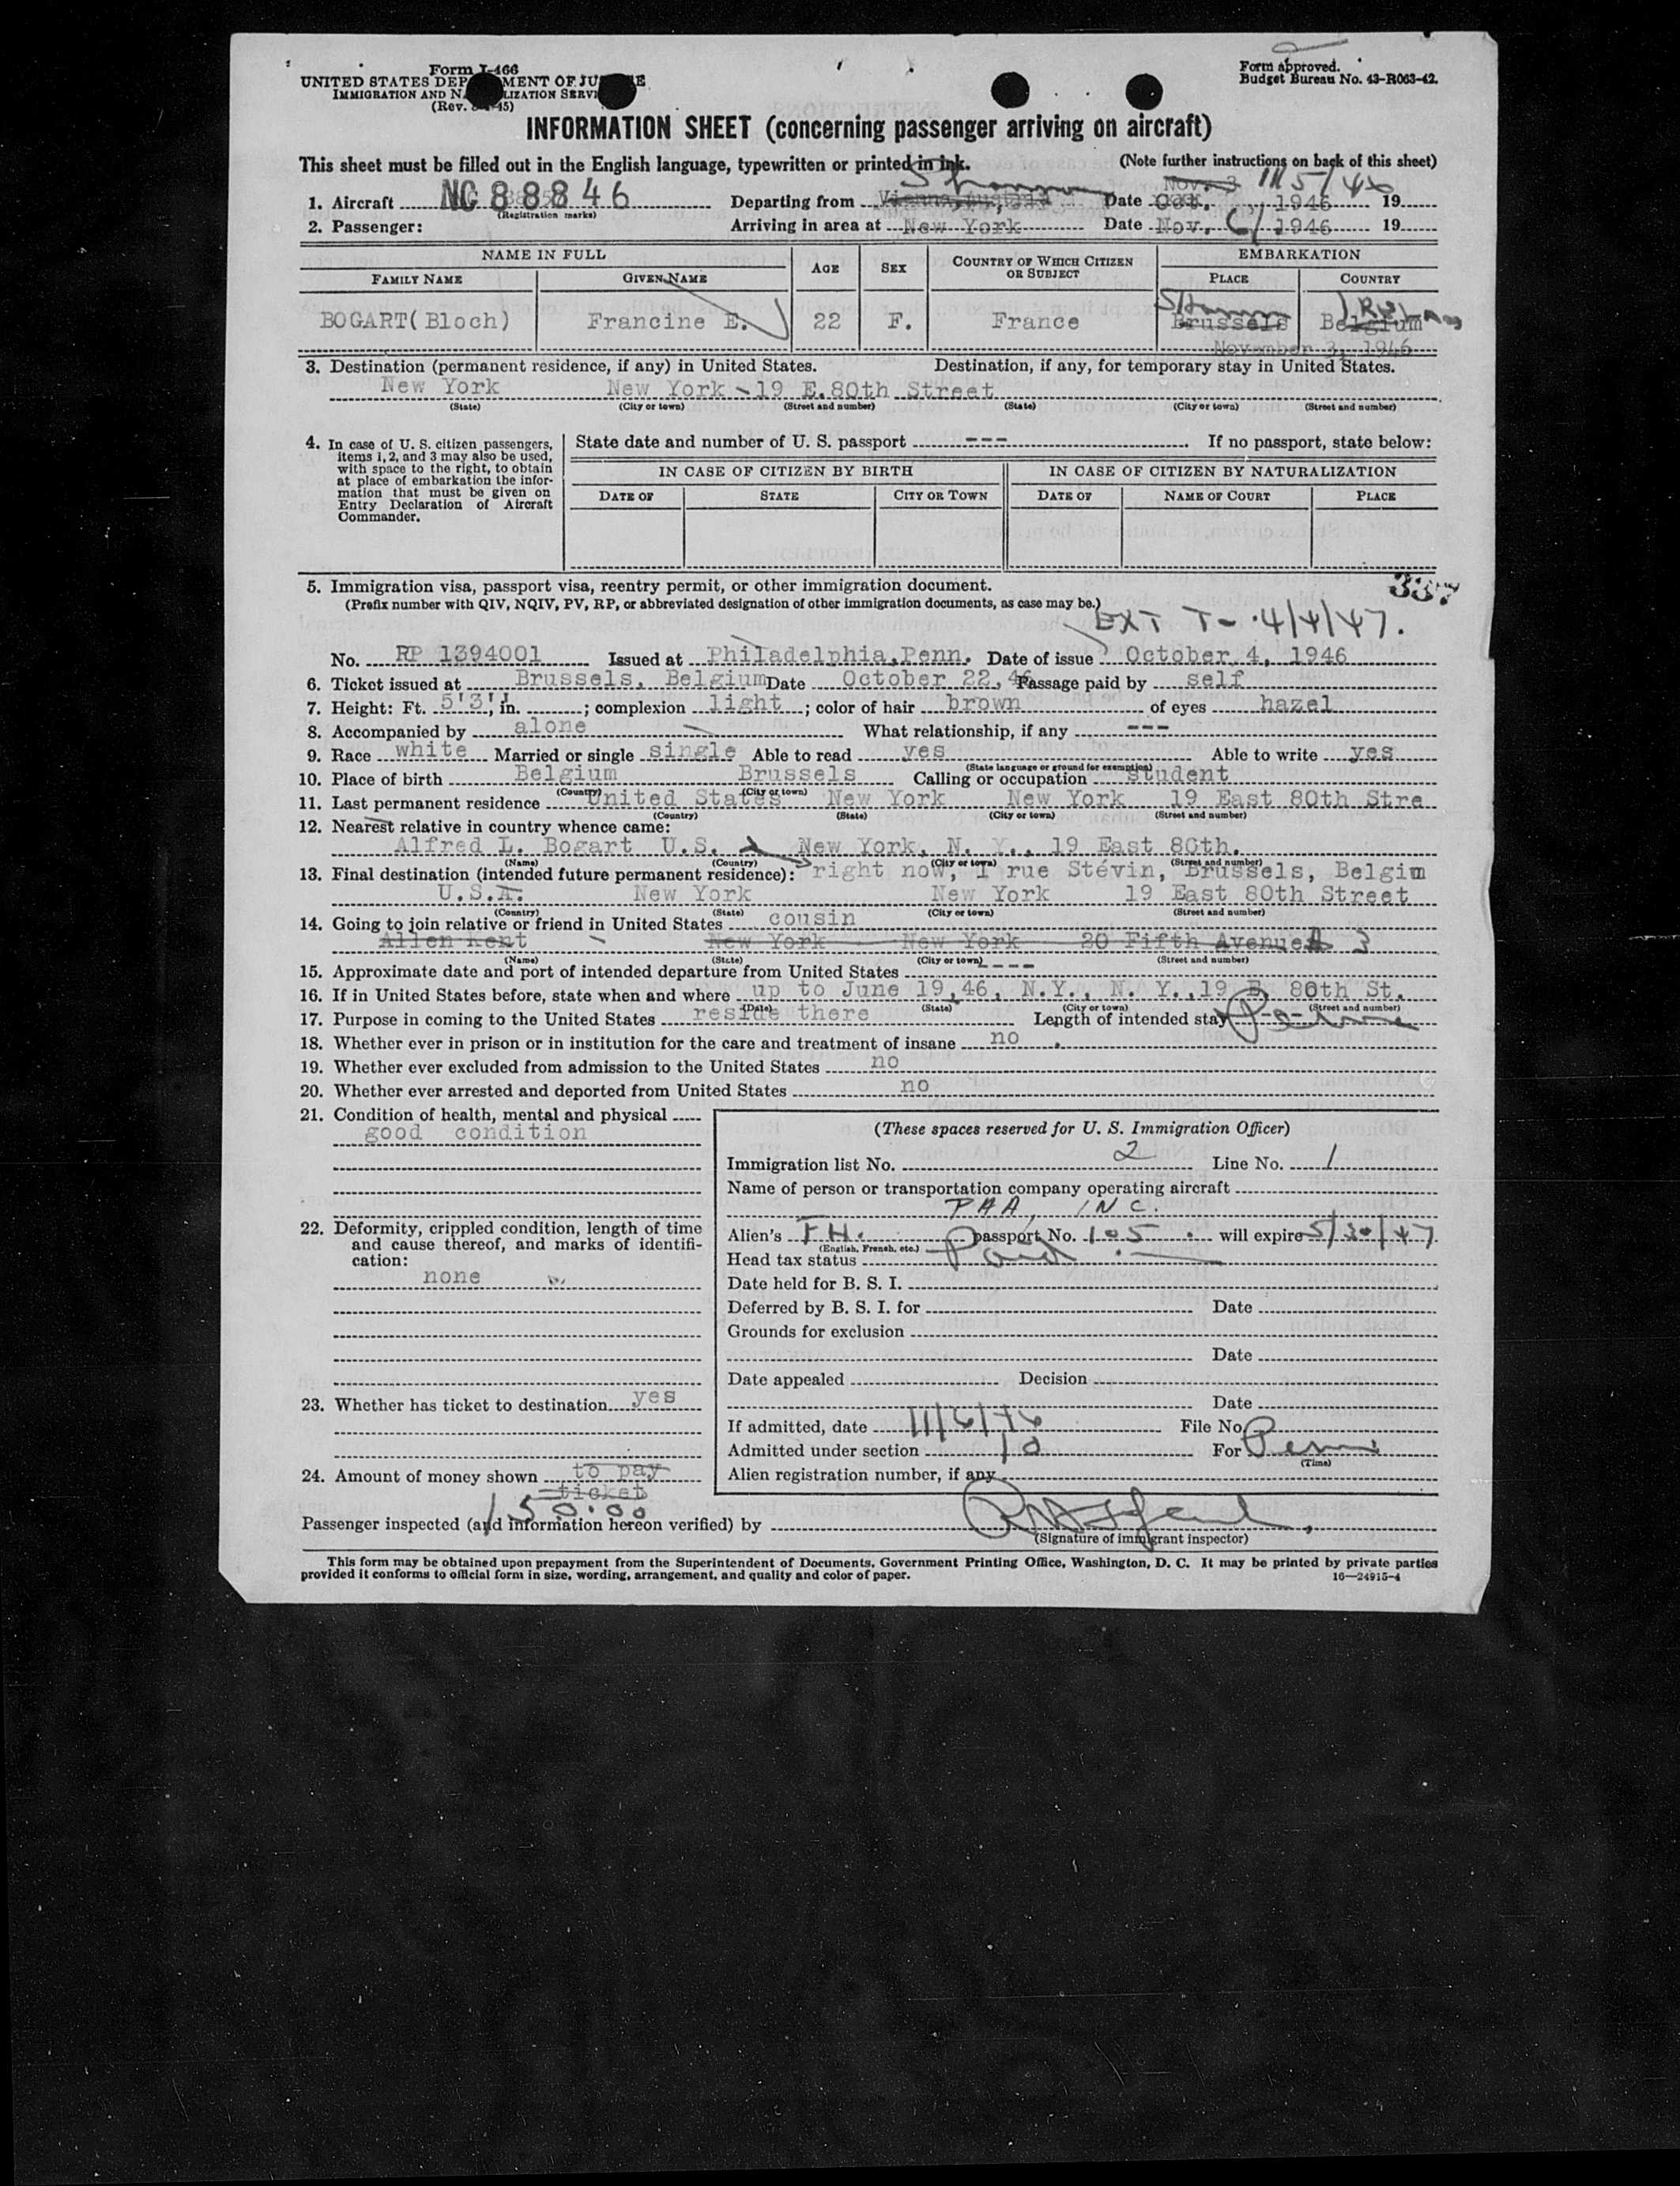 Form I-466
UNITED STATES DEP MENT OF JU E
IMMIGRATION AND N LIZATION SERVI
(Rev. 45)
Form approved.
Budget Bureau No. 43-R063-42.
INFORMATION SHEET (concerning passenger arriving on aircraft)
This sheet must be filled out in the English language, typewritten or printed in ink. (Note further instructions on back of this sheet)
Shannon Nov. 3 11/5/46
1. Aircraft NC 88846 Departing from Vienna, Austria Date Oct. , 1946 19
(Registration marks)
2. Passenger: Arriving in area at New York Date Nov. 6/ 1946 19
NAME IN FULL AGE SEX COUNTRY OF WHICH CITIZEN OR SUBJECT EMBARKATION
FAMILY NAME GIVEN NAME PLACE COUNTRY
Shannon Ireland
BOGART(Bloch) Francine E. 22 F. France Brussels Belgium
November 3, 1946
3. Destination (permanent residence, if any) in United States. Destination, if any, for temporary stay in United States.
New York New York - 19 E.80th Street
(State) (City or town) (Street and number) (State) (City or town) (Street and number)
4. In case of U. S. citizen passengers, items 1, 2, and 3 may also be used, with space to the right, to obtain at place of embarkation the information that must be given on Entry Declaration of Aircraft Commander.
State date and number of U. S. passport --- . If no passport, state below:
IN CASE OF CITIZEN BY BIRTH IN CASE OF CITIZEN BY NATURALIZATION
DATE OF STATE CITY OR TOWN DATE OF NAME OF COURT PLACE
5. Immigration visa, passport visa, reentry permit, or other immigration document. 337
(Prefix number with QIV, NQIV, PV, RP, or abbreviated designation of other immigration documents, as case may be.)
EXT To 4/4/47.
No. RP 1394001 Issued at Philadelphia,Penn. Date of issue October 4, 1946
6. Ticket issued at Brussels, Belgium Date October 22, 46 Passage paid by self
7. Height: Ft. 5'3", in. ; complexion light ; color of hair brown of eyes hazel
8. Accompanied by alone What relationship, if any ---
9. Race white Married or single single Able to read yes Able to write yes
(State language or ground for exemption)
10. Place of birth Belgium Brussels Calling or occupation student
(Country) (City or town)
11. Last permanent residence United States New York New York 19 East 80th Stre
(Country) (State) (City or town) (Street and number)
12. Nearest relative in country whence came:
Alfred L. Bogart U.S. New York, N. Y., 19 East 80th.
(Name) (Country) (City or town) (Street and number)
13. Final destination (intended future permanent residence): right now, 1 rue Stévin, Brussels, Belgium
U.S.A. New York New York 19 East 80th Street
(Country) (State) (City or town) (Street and number)
14. Going to join relative or friend in United States cousin
Allen Kent New York New York 20 Fifth Avenue 3
(Name) (State) (City or town) (Street and number)
15. Approximate date and port of intended departure from United States ----
16. If in United States before, state when and where up to June 19,46, N.Y., N. Y.,19 E. 80th St.
(Date) (State) (City or town) (Street and number)
17. Purpose in coming to the United States reside there Length of intended stay
18. Whether ever in prison or in institution for the care and treatment of insane no
19. Whether ever excluded from admission to the United States no
20. Whether ever arrested and deported from United States no
21. Condition of health, mental and physical
good condition
22. Deformity, crippled condition, length of time and cause thereof, and marks of identification:
none
23. Whether has ticket to destination yes
24. Amount of money shown to pay
ticket
150.00
(These spaces reserved for U. S. Immigration Officer)
Immigration list No. 2 Line No. 1
Name of person or transportation company operating aircraft
PAA, INC.
Alien's FH. passport No. 105 will expire 5/30/47
(English, French, etc.)
Head tax status Paid
Date held for B. S. I.
Deferred by B. S. I. for Date
Grounds for exclusion
Date
Date appealed Decision
Date
If admitted, date 11/6/46 File No.
Admitted under section For Perm
(Time)
Alien registration number, if any
Passenger inspected (and information hereon verified) by
(Signature of immigrant inspector)
This form may be obtained upon prepayment from the Superintendent of Documents, Government Printing Office, Washington, D. C. It may be printed by private parties
provided it conforms to official form in size, wording, arrangement, and quality and color of paper. 16—24915-4